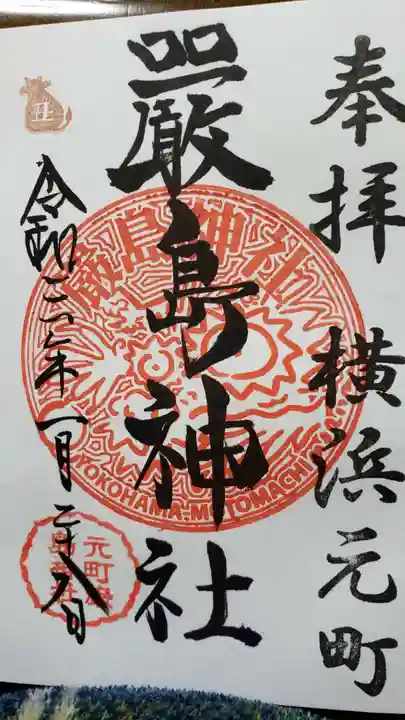 奉拝 横浜元町
嚴島神社
令和三年一月二十八日
丑
厳島神社
YOKOHAMA,MOTOMACHI
元町厳島神社